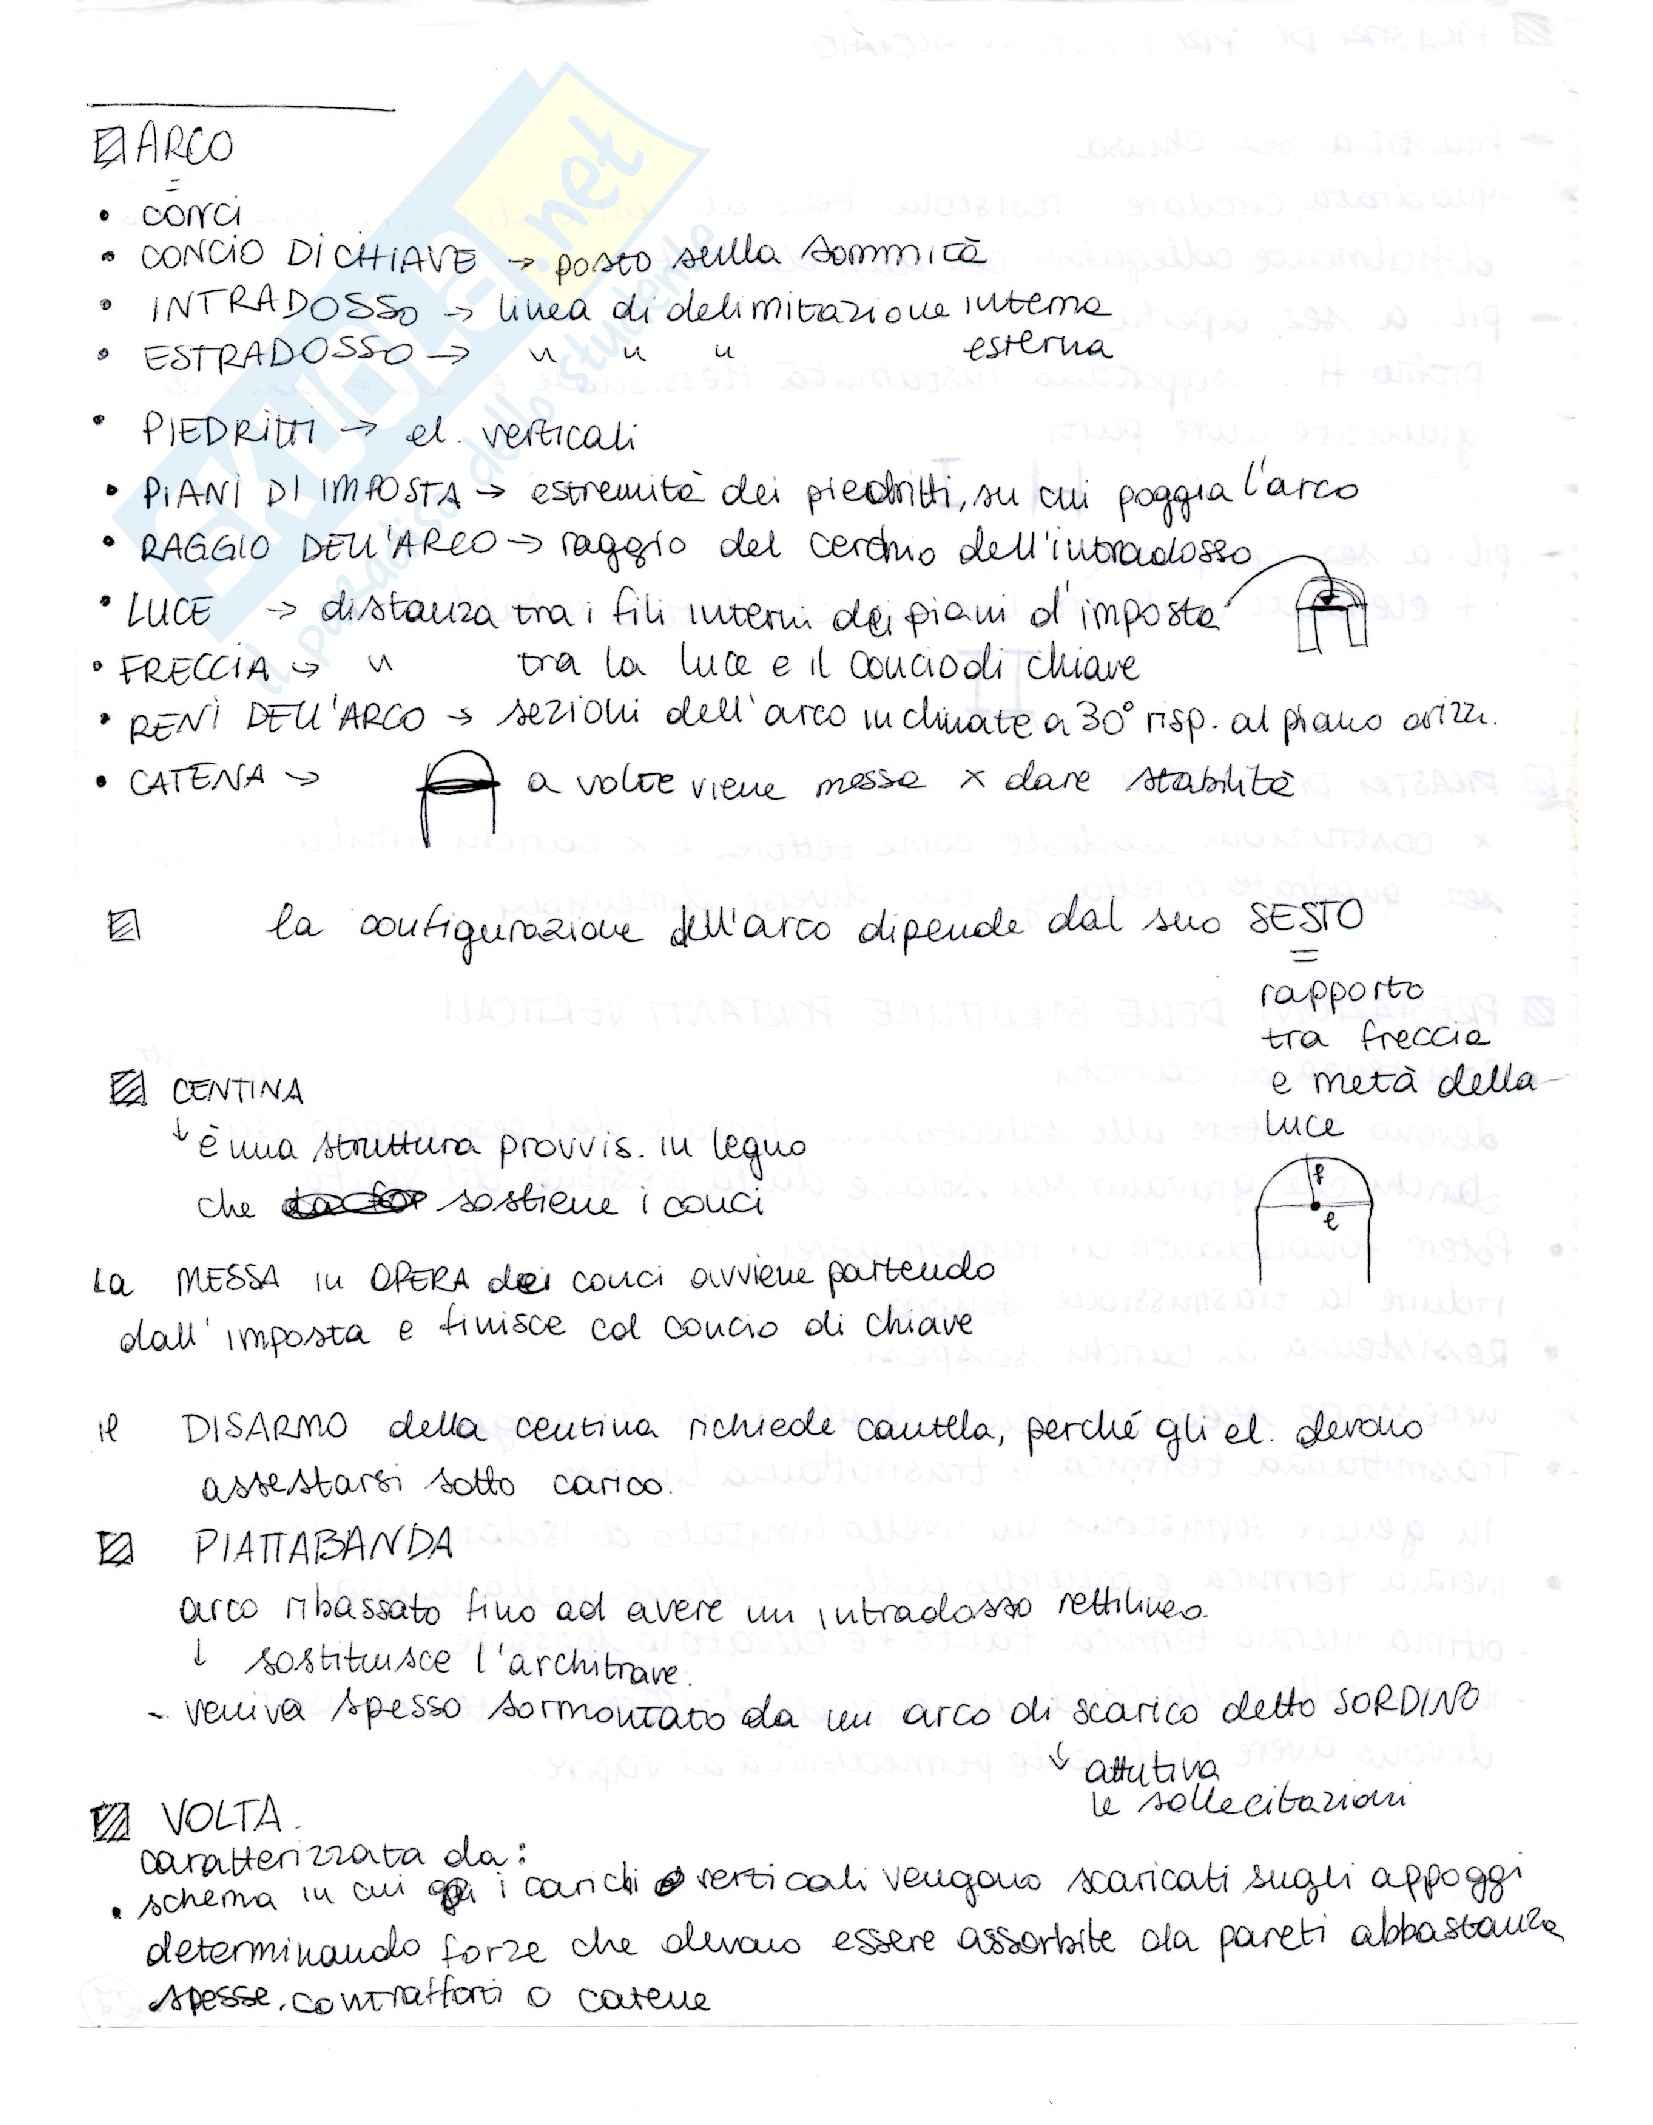 ARCO
=
• CONCI
• CONCIO DI CHIAVE → posto sulla sommità
• INTRADOSSO → linea di delimitazione interna
• ESTRADOSSO → " " " esterna
• PIEDRITTI → el. verticali
• PIANI DI IMPOSTA → estremità dei piedritti, su cui poggia l'arco
• RAGGIO DELL'ARCO → raggio del cerchio dell'intradosso
• LUCE → distanza tra i fili interni dei piani d'imposta
• FRECCIA → " tra la luce e il concio di chiave
• RENI DELL'ARCO → sezioni dell'arco inclinate a 30° risp. al piano orizz.
• CATENA → a volte viene messa x dare stabilità
la configurazione dell'arco dipende dal suo SESTO
=
rapporto
tra freccia
e metà della
luce
f
l
CENTINA
↓ è una struttura provvis. in legno
che sostiene i conci
La MESSA in OPERA dei conci avviene partendo
dall'imposta e finisce col concio di chiave
il DISARMO della centina richiede cautela, perché gli el. devono
assestarsi sotto carico.
PIATTABANDA
arco ribassato fino ad avere un intradosso rettilineo
↓ sostituisce l'architrave.
- veniva spesso sormontato da un arco di scarico detto SORDINO
↓ attutiva
le sollecitazioni
VOLTA.
caratterizzata da:
• schema in cui i carichi verticali vengono scaricati sugli appoggi
determinando forze che devono essere assorbite da pareti abbastanza
spesse, contrafforti o catene
skuola.net
il paradiso dello studente